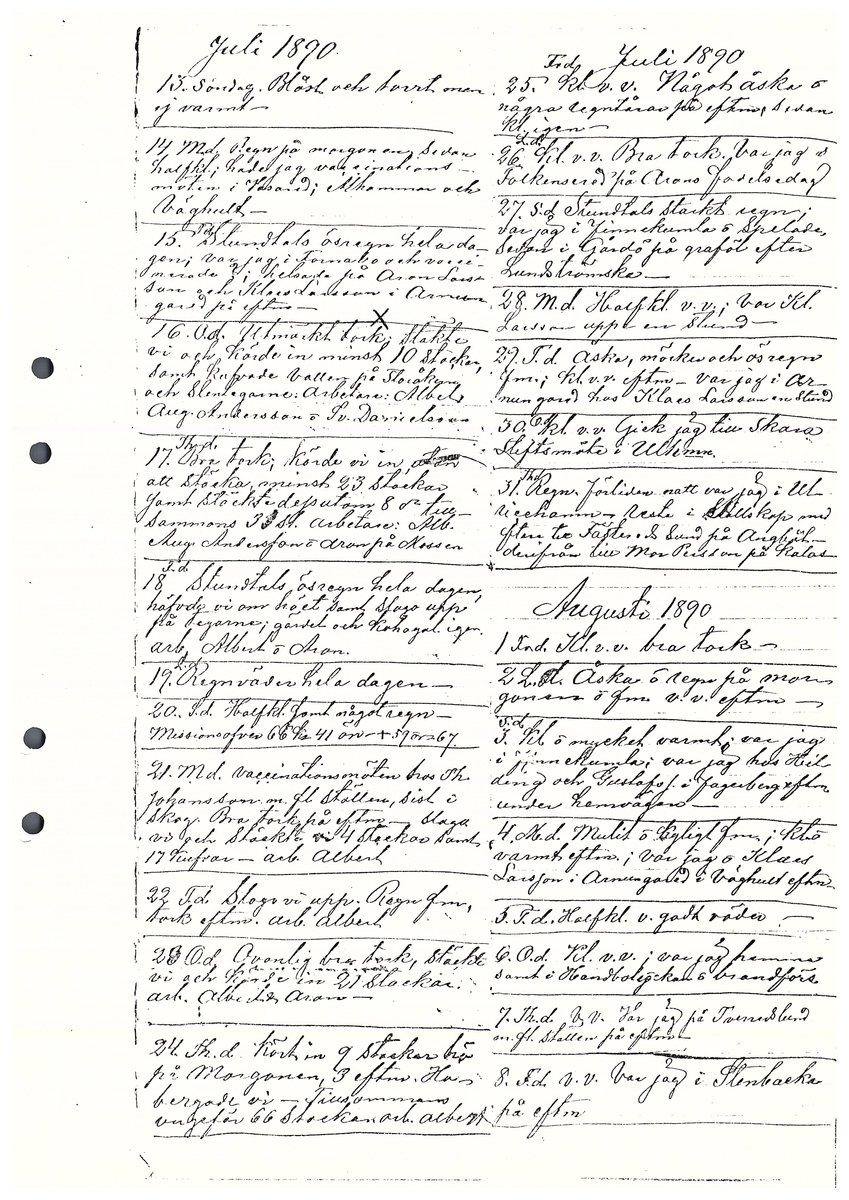 Juli 1890.
13. Söndag. Blåst och torrt men
ej varmt –
14 M.d. Regn på morgonen, sedan
halfkl; hade jag vaccinations –
möten i Alhammar och
Våghult –
15. T.d. Stundtals ösregn hela da-
gen; var jag i Tornabo och vacci-
nerade helsade på Aron Lars-
son och Klaes Larsson i Arnun-
gared på eftm –
16. O.d. Utmärkt tork; stäkte
vi och körde in minst 10 stackar,
samt räfsade vallen på
och Slentegarne. Arbetare: Albert
Aug. Andersson o Sv. Danielsson
17. Th.d. Bra tork; körde vi in
all stäcka, minst 23 stackar
samt stäckte dessutom 8 or till-
sammans 33 st. arbetare: Alb.
Aug. Andersson o Aron på Mossen
18. F.d. Stundtals ösregn hela dagen,
vi om höet samt slogo upp
på tegarne; gärdet och kohagal. igen.
arb. Albert o Aron.
19. L.d. Regnväder hela dagen –
20. S.d. Halfkl. samt något regn –
Missionsofver 66 Kr 41 ör + 59 ör = 67.
21. M.d. vaccinationsmöten hos Th
Johansson m. fl ställen, sist i
Skog. Bra tork på eftm – slogo
vi och stäckte 4 stackar samt
17 – arb. Albert
22 T.d. Slogo vi upp. Regn fm,
tork eftm. arb. Albert
23 O.d. Ovanlig bra tork, stäckte
vi och körde in 21 stackar.
arb. Albert o Aron –
24. Th.d. Kört in 9 stackar hö
på Morgonen, 3 eftm. Ha-
bergade vi – tillsammans
ungefär 66 stackar. arb. Albert
Juli 1890
25. Frd. Kl. v. v. Något åska o
några regntårar på eftm, sedan
kl. igen –
26. L.d. Kl. v. v. Bra tork. Var jag i
Folkensered på Arons födelsedag
27. S.d Stundtals starkt regn;
var jag i Finnekumla o spelade,
sedan i Gårdö på graföl efter
Lundströmska –
28. M.d. Halfkl. v. v.; var Kl.
Larsson uppe en stund –
29. T.d. Åska, möcke och ösregn
fm.; kl. v. v. eftm – var jag i Ar-
nungared hos Klaes Larsson en stund
30. O.d. Kl. v. v. Gick jag till Skara
Stiftsmöte i Ulrhmn.
31. Thd. Regn. Förliden natt var jag i Ul-
ricehamn – reste i sällskap med
Sund på
derifrån till Mor Persson på Kalas
Augusti 1890
1 Frd. Kl. v. v. bra tork –
2 L.d. Åska o regn på mor-
gonen o fm. v. v. eftm –
3. S.d. Kl o mycket varmt; var jag
i Finnekumla; var jag hos Hil-
ding och Gustafss. i Jagerberg eftm
under hemvägen –
4. M.d. Mulit o kyligt fm.; kl o
varmt eftm.; var jag o Klaes
Larsson i Arnungared i Våghult eftm.
5. T.d. Halfkl. v. godt väder –
6. O.d. Kl. v. v.; var jag hemma
samt i Handbolyckan o brandförs.
7. Th.d. v. v. Var jag på Tveredslund
m. fl. ställen på eftm –
8. F.d. v. v. Var jag i Stenbacka
på eftm